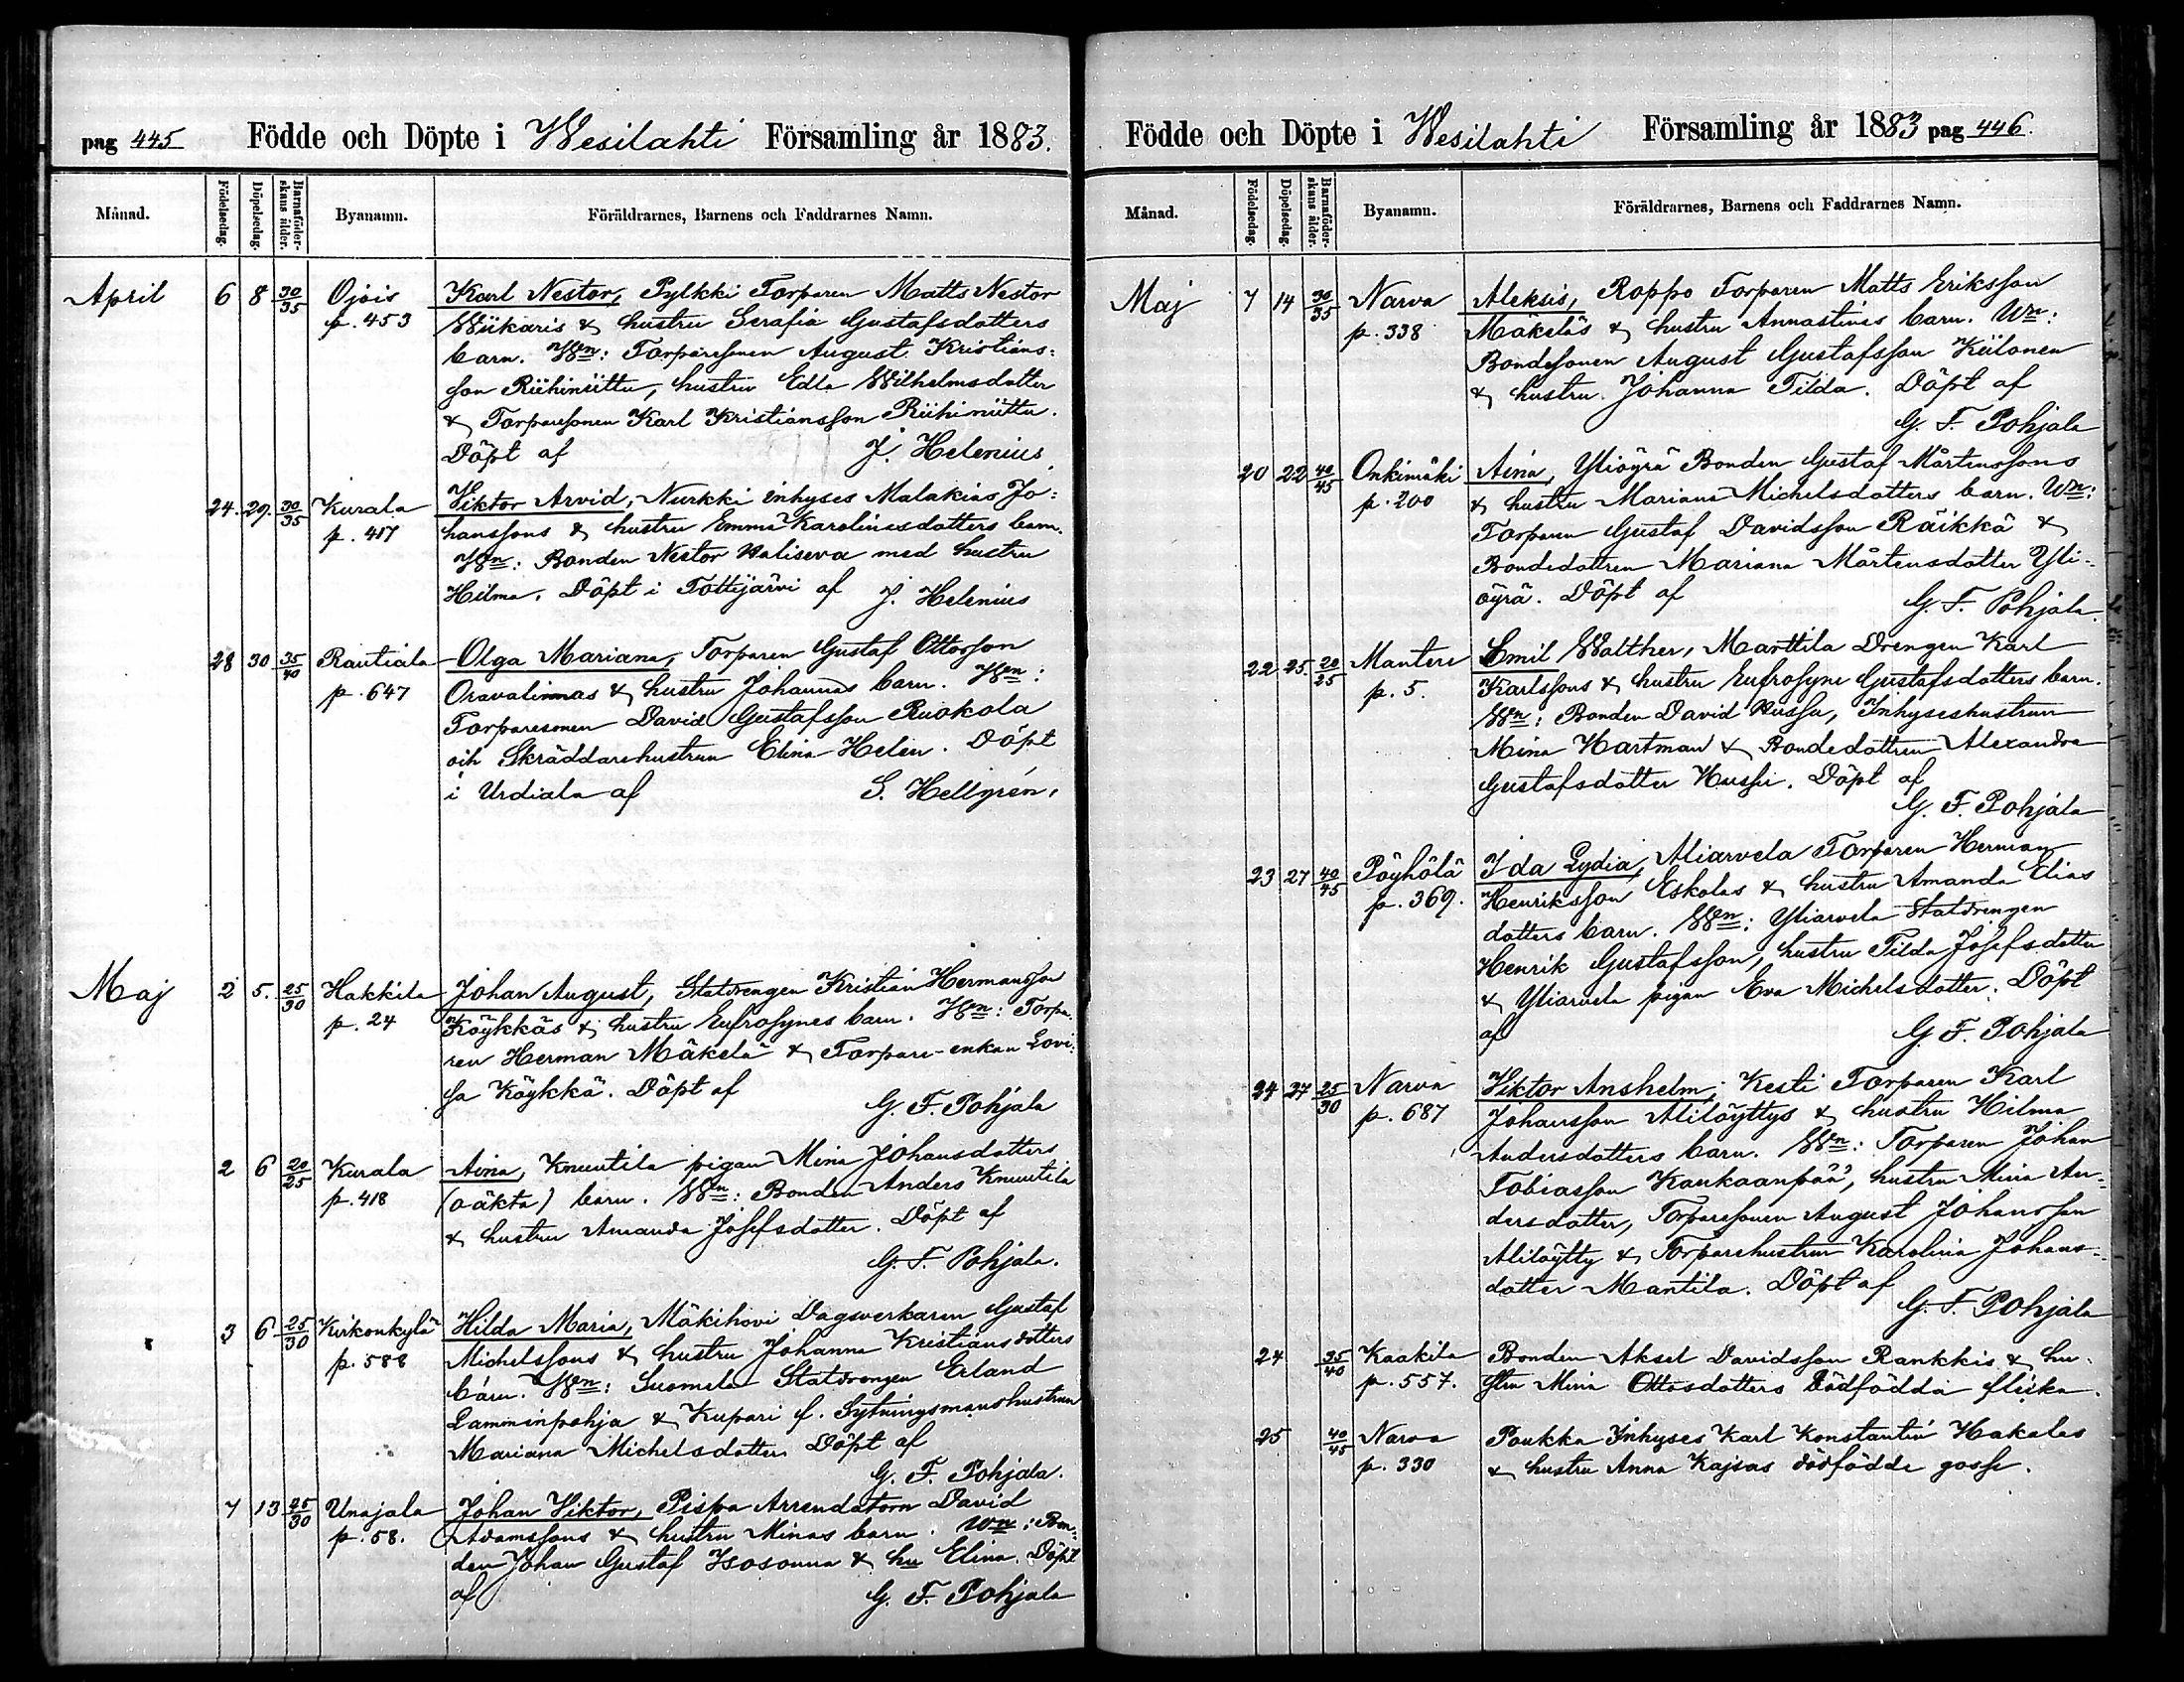 pag 445 Födde och Döpte i Wesilahti Församling år 1883.
Månad. Födelsedag. Döpelsedag. Barnaföderskans ålder. Byanamn. Föräldrarnes, Barnens och Faddrarnes Namn.
April 6 8 30/35 Ojois Karl Nestor, Pylkki Torparen Matts Nestor
p. 453 Wiikaris & hustru Serafia Gustafsdotters
barn. Wn: Torparesonen August Kristians:
son Riihiniittu, hustru Edla Wilhelmsdotter
& Torparesonen Karl Kristiansson Riihiniittu.
Döpt af J. Helenius
24. 29. 30/35 Kurala Viktor Arvid, Nurkki inhyses Malakias Jo:
p. 417 hanssons & hustru Emma Karolinasdotters barn.
Wn: Bonden Nestor Waliseva med hustru
Hilma. Döpt i Tottijärvi af J. Helenius
28 30 35/40 Rautiala Olga Mariana, Torparen Gustaf Ottosson
p. 647 Oravalinnas & hustru Johannas barn. Wn:
Torparesonen David Gustafsson Ruokola
och Skräddarehustrun Elina Helen. Döpt
i Urdiala af S. Hellgrén.
Maj 2 5. 25/30 Hakkila Johan August, Statdrengen Kristian Hermansson
p. 24 Köykkäs & hustru Eufrosynes barn. Wn: Torpa:
ren Herman Mäkelä & Torpare-enkan Lovi:
sa Köykkä. Döpt af
G. F. Pohjala
2 6 20/25 Kurala Aina, Knuutila pigan Mina Johansdotters
p. 418 (oäkta) barn. Wn: Bonden Anders Knuutila
& hustru Amanda Josefsdotter. Döpt af
G. F. Pohjala.
3 6 25/30 Kirkonkylä Hilda Maria, Mäkihovi Dagsverkaren Gustaf
p. 588 Michelssons & hustru Johanna Kristiansdotters
barn. Wn: Suomela Statdrengen Erland
Lamminpohja & Kupari f. Sytningsmanshustrun
Mariana Michelsdotter. Döpt af
G. F. Pohjala.
7 13 25/30 Unajala Johan Viktor, Pispa Arrendatorn David
p. 58. Adamssons & hustru Minas barn. Wn: Bon:
den Johan Gustaf Isosonna & hu Elina. Döpt
af G. F. Pohjala
Födde och Döpte i Wesilahti Församling år 1883 pag 446.
Månad. Födelsedag. Döpelsedag. Barnaföderskans ålder. Byanamn. Föräldrarnes, Barnens och Faddrarnes Namn.
Maj 7 14 30/35 Narva Aleksis, Roppo Torparen Matts Eriksson
p. 338 Mäkeläs & hustru Annastinas barn. Wn:
Bondesonen August Gustafsson Kiilonen
& hustru Johanna Tilda. Döpt af
G. F. Pohjala
20 22 40/45 Onkimäki Aina, Yliöyrä Bonden Gustaf Mårtenssons
p. 200 & hustru Mariana Michelsdotters barn. Wn:
Torparen Gustaf Davidsson Räikkä &
Bondedottren Mariana Mårtensdotter Yli-
öyrä. Döpt af
G. F. Pohjala.
22 25. 20/25 Mantere Emil Walther, Marttila Drengen Karl
p. 5. Karlssons & hustru Eufrosyne Gustafsdotters barn.
Wn: Bonden David Hussa, Inhyseshustrun
Mina Hartman & Bondedottren Alexandra
Gustafsdotter Hussa. Döpt af
G. F. Pohjala
23 27 40/45 Pöyhölä Ida Lydia, Aliarvela Torparen Herman
p. 369. Henriksson Eskolas & hustru Amanda Elias
dotters barn. Wn: Yliarvela Statdrengen
Henrik Gustafsson, hustru Tilda Josefsdotter
& Yliarvela pigan Eva Michelsdotter. Döpt
af G. F. Pohjala
24 27 25/30 Narva Viktor Anshelm, Kesti Torparen Karl
p. 687 Johansson Alilöyttys & hustru Hilma
Andersdotters barn. Wn: Torparen Johan
Tobiasson Kankaanpää, hustru Mina An-
dersdotter, Torparesonen August Johansson
Alilöytty & Torparehustrun Karolina Johans-
dotter Mantila. Döpt af
G. F. Pohjala
24 35/40 Kaakila Bonden Aksel Davidsson Rankkis & hu-
p. 557. stru Mina Ottosdotters dödfödda flicka.
25 40/45 Narva Poukka Inhyses Karl Konstantin Hakalas
p. 330 & hustru Anna Kajsas dödfödde gosse.